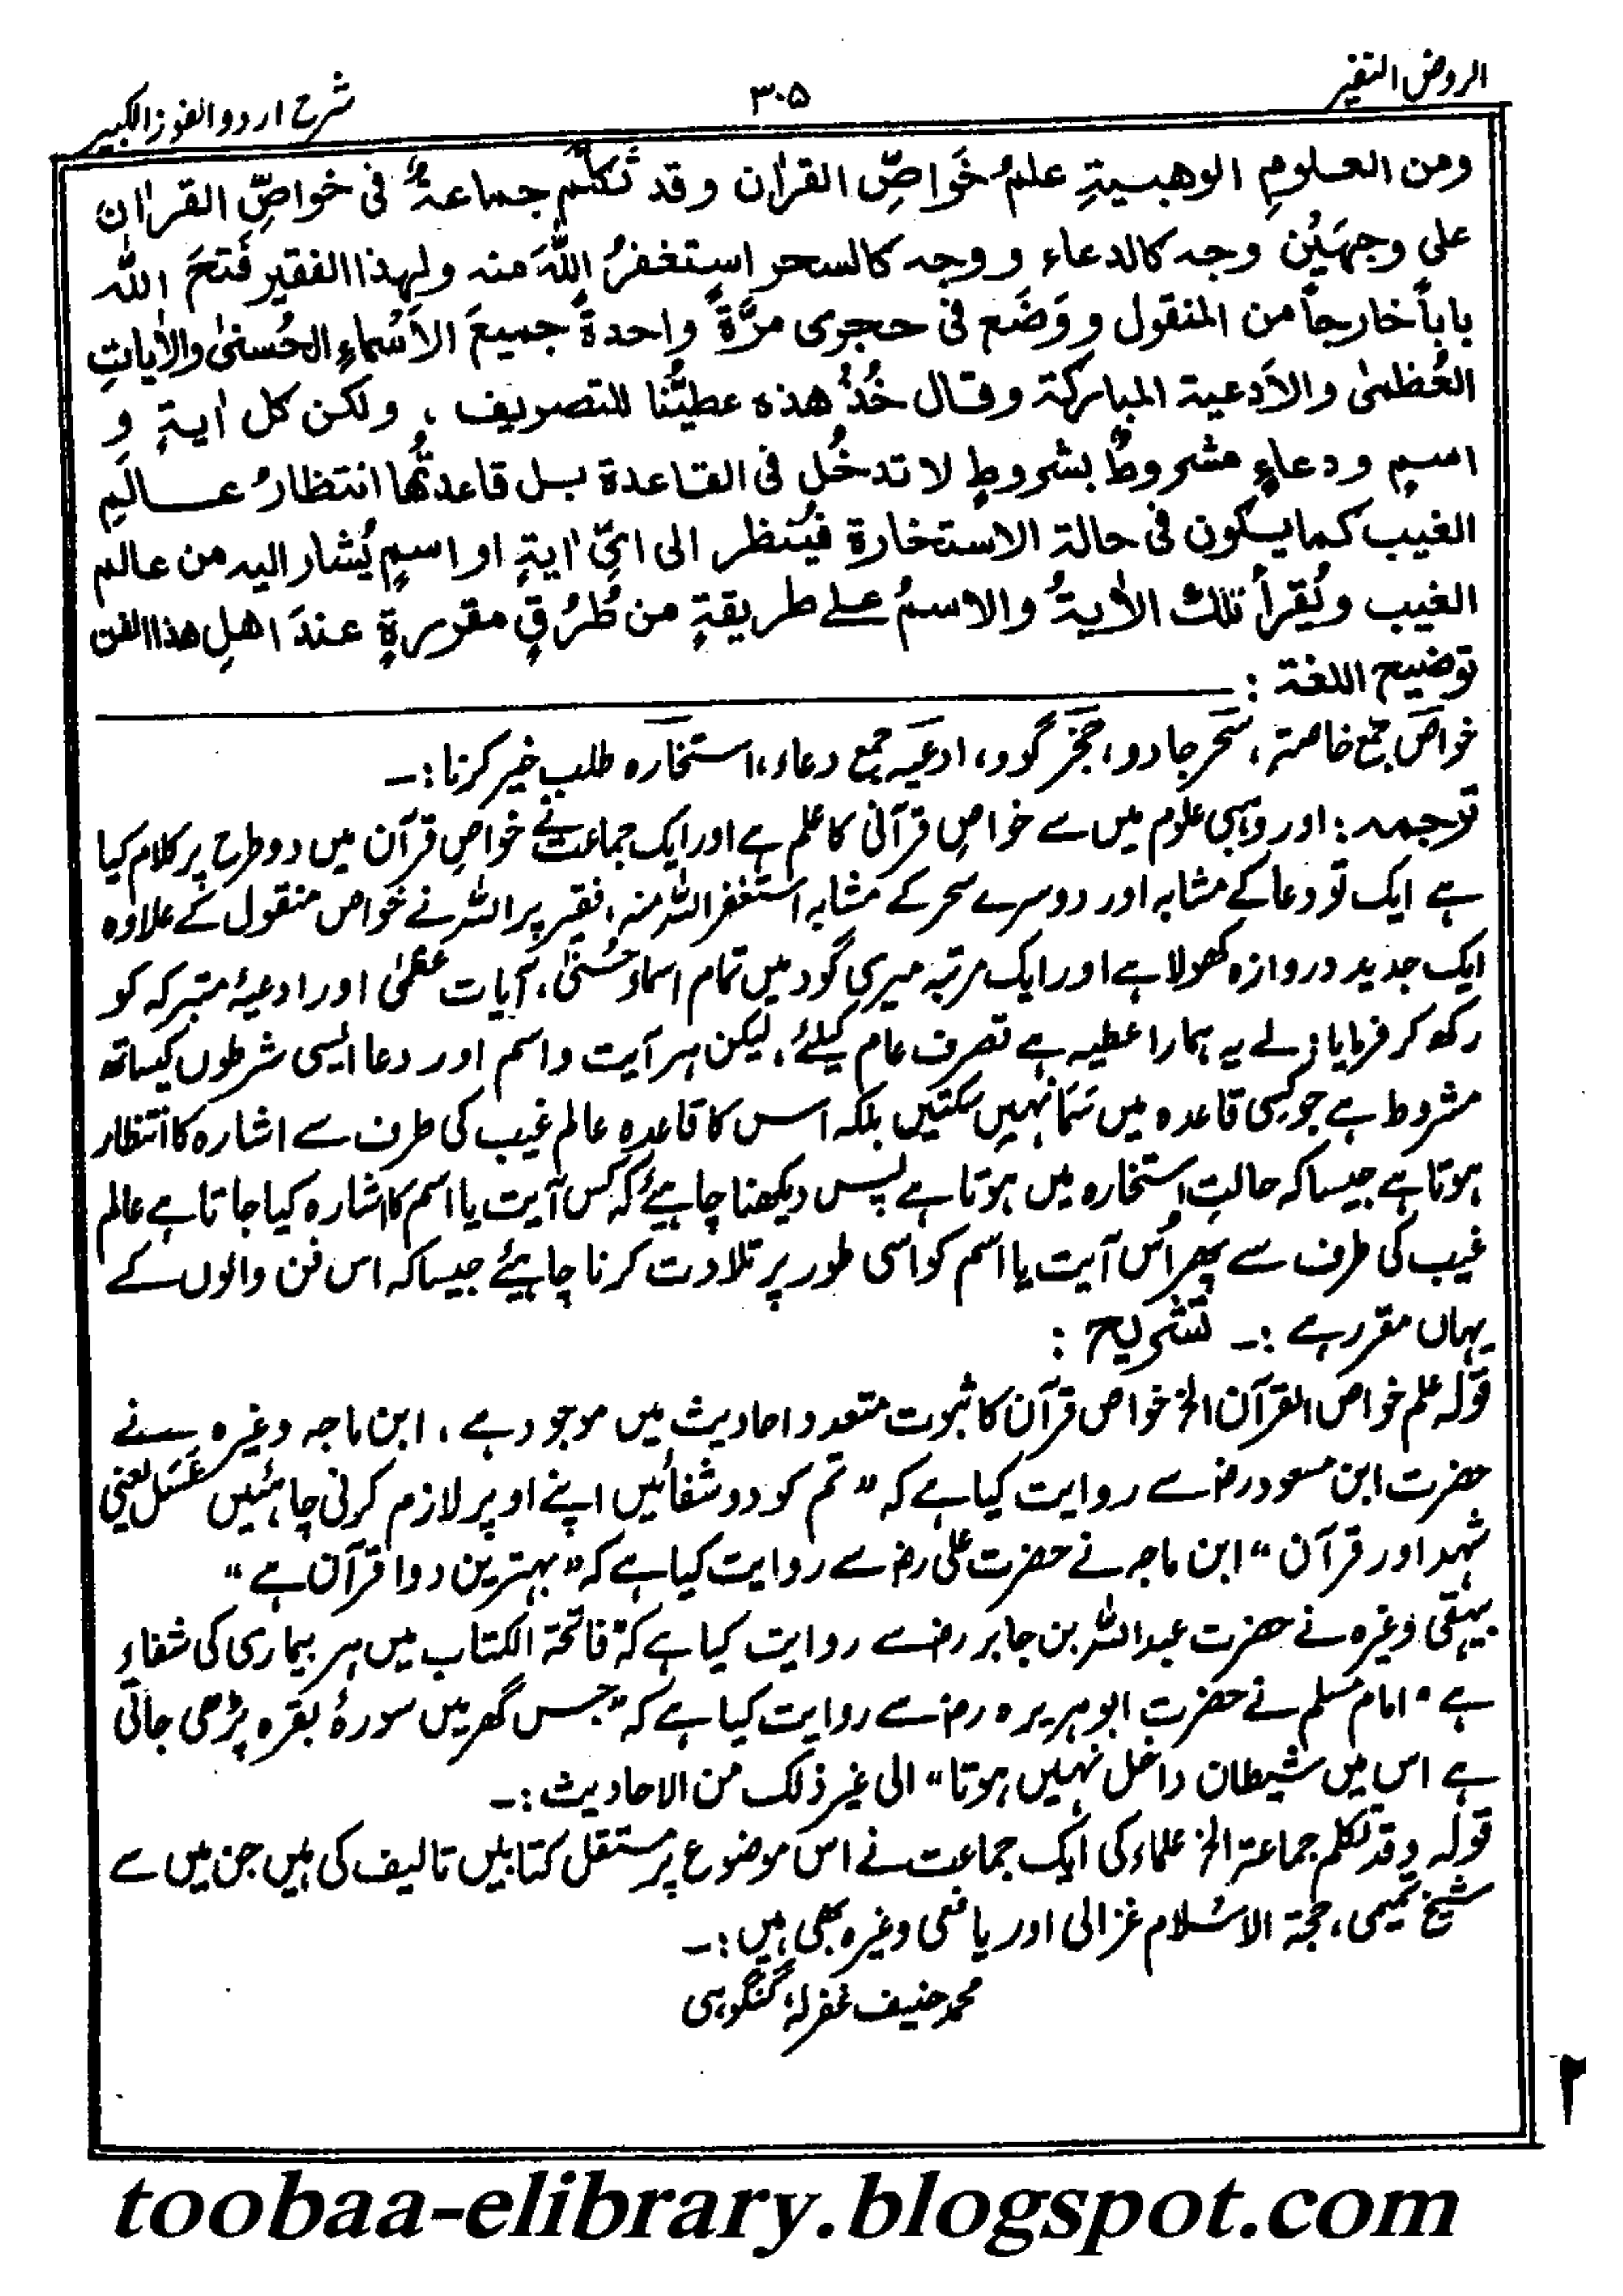 الروض النضیر
۳۰۵
شرح اردو الفوز الکبیر
ومن العلومِ الوهبیةِ علمُ خَواصِّ القراٰن وقد تکلّم جماعةٌ فی خواصِّ القراٰن
علی وجهَیْن وجه کالدعاء ووجه کالسحر استغفرُ اللّٰہَ منه ولهذا الفقیر فَتحَ اللّٰہ
باباً خارجاً من المنقول ووَضَع فی حجری مرَّةً واحدةً جمیعَ الاَسْماءِ الحُسنیٰ والاٰیاتِ
العُظمیٰ والاَدعیة المبارکة وقال خُذْ هذه عطیّتُنا للتصریف ، ولکن کل اٰیةٍ و
اسمٍ ودعاءٍ مشروطٌ بشروطٍ لا تدخُل فی القاعدة بل قاعدتُها انتظارُ عالَمِ
الغیب کما یکون فی حالة الاستخارة فیُنظر الی ایِّ اٰیةٍ او اسمٍ یُشار الیه من عالم
الغیب ویُقرأ تلك الاٰیةُ والاسمُ علے طریقةٍ من طُرُقٍ مقررةٍ عندَ اهلِ هذا الفن
توضیح اللغة :
خواص جمع خاصة، سَحَر جادو، حَجَر گود، ادعیَہ جمع دعاء، استخارہ طلب خیر کرنا :۔
ترجمہ : اور وہبی علوم میں سے خواصِ قرآنی کا علم ہے اور ایک جماعت نے خواصِ قرآن میں دو طرح پر کلام کیا
ہے ایک تو دعا کے مشابہ اور دوسرے سحر کے مشابہ استغفر اللہ منہ، فقیر پر اللہ نے خواص منقول کے علاوہ
ایک جدید دروازہ کھولا ہے اور ایک مرتبہ میری گود میں تمام اسماء حُسنیٰ، آیات عظمیٰ اور ادعیۂ متبرکہ کو
رکھ کر فرمایا ز لے یہ ہمارا عطیہ ہے تصرف عام کیلئے، لیکن ہر آیت واسم اور دعا ایسی شرطوں کیساتھ
مشروط ہے جو کسی قاعدہ میں سَمَا نہیں سکتیں بلکہ اس کا قاعدہ عالم غیب کی طرف سے اشارہ کا انتظار
ہوتا ہے جیسا کہ حالتِ استخارہ میں ہوتا ہے پس دیکھنا چاہیئے کہ کس آیت یا اسم کا اشارہ کیا جاتا ہے عالم
غیب کی طرف سے پھر اُس آیت یا اسم کو اسی طور پر تلاوت کرنا چاہیئے جیسا کہ اس فن والوں کے
یہاں مقرر ہے :۔ تشریح :
قولہ علم خواص القرآن الخ خواص قرآن کا ثبوت متعدد احادیث میں موجود ہے ، ابن ماجہ وغیرہ نے
حضرت ابن مسعود رضؓ سے روایت کیا ہے کہ ” تم کو دو شفائیں اپنے اوپر لازم کرنی چاہئیں عَسَل یعنی
شہد اور قرآن “ ابن ماجہ نے حضرت علی رضؓ سے روایت کیا ہے کہ ” بہترین دوا قرآن ہے “
بیہقی وغیرہ نے حضرت عبداللہ بن جابر رضؓ سے روایت کیا ہے کہ ” فاتحۃ الکتاب میں ہر بیماری کی شفاء
ہے “ امام مسلم نے حضرت ابو ہریرہ رضؓ سے روایت کیا ہے کہ ” جس گھر میں سورۂ بقرہ پڑھی جاتی
ہے اس میں شیطان داخل نہیں ہوتا “ الی غیر ذلک من الاحادیث :۔
قولہ وقد تکلم جماعۃ الخ علماء کی ایک جماعت نے اس موضوع پر مستقل کتابیں تالیف کی ہیں جن میں سے
شیخ تمیمی، حجۃ الاسلام غزالی اور یافعی وغیرہ بھی ہیں :۔
محمد حنیف غفرلہٗ گنگوہی
۲
toobaa-elibrary.blogspot.com